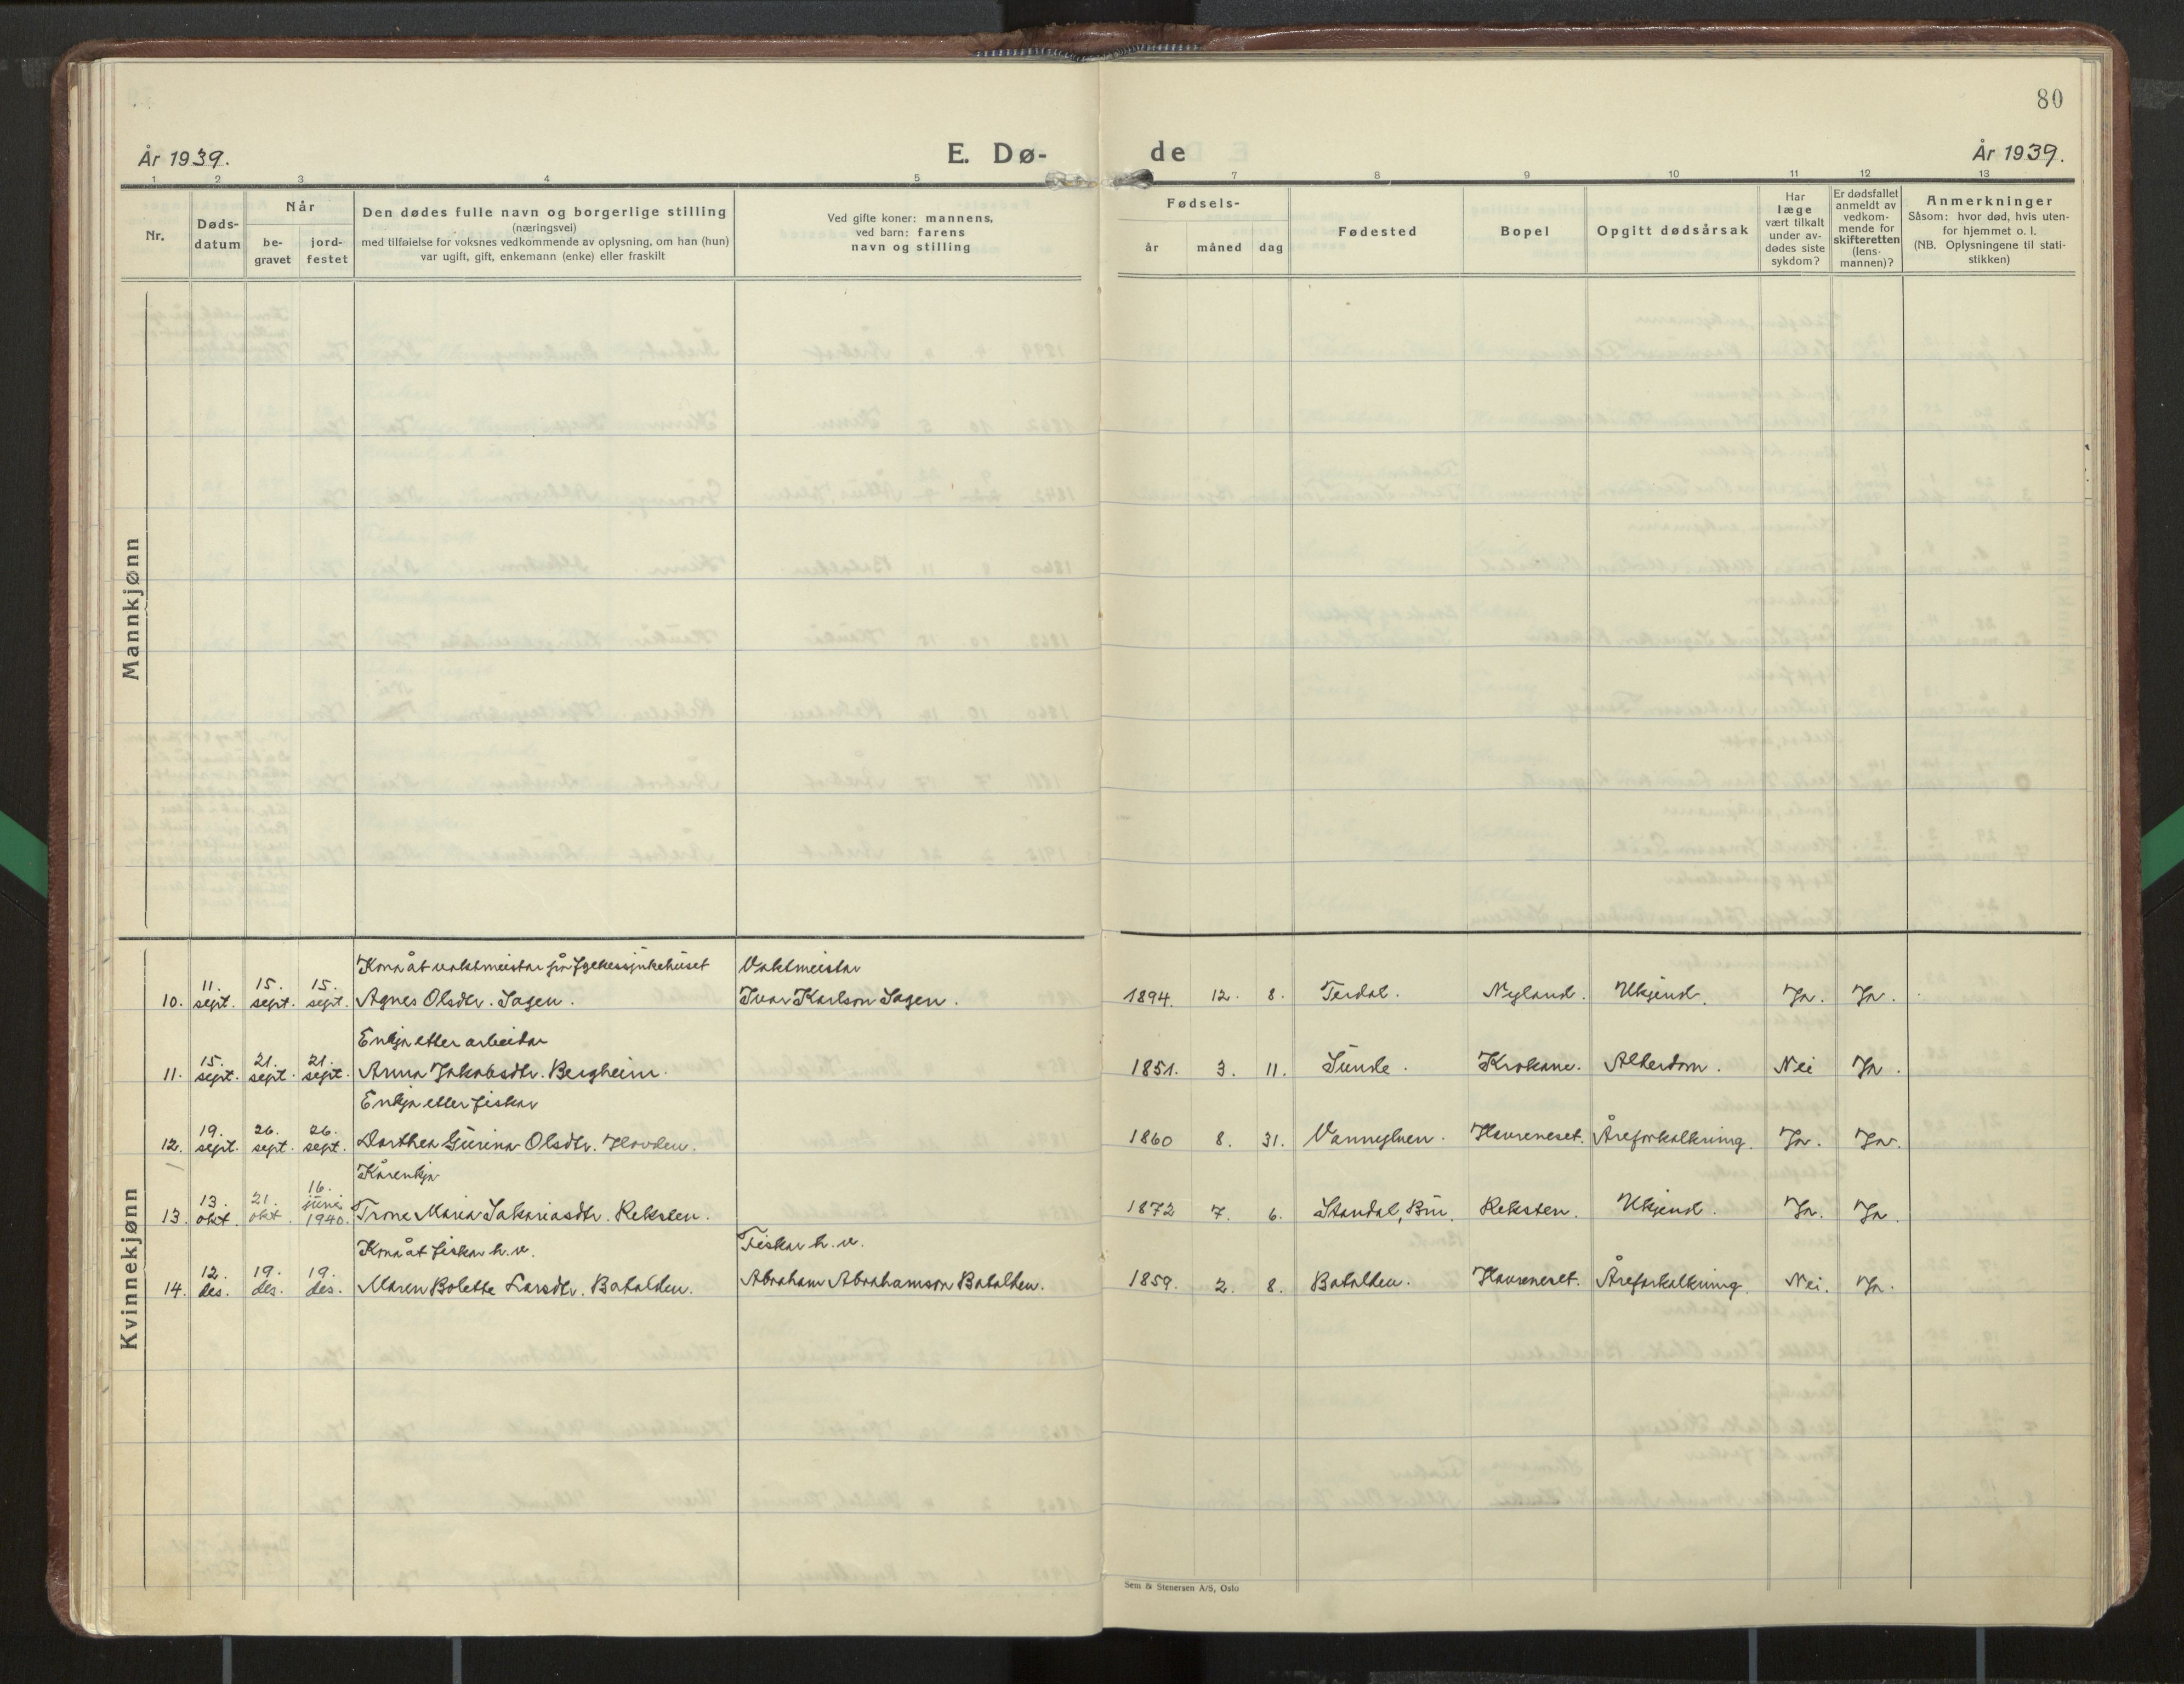 80
År 1939.
E. Dø-
de
År 1939.
1 2 3 4 5 7 8 9 10 11 12 13
Nr.
Døds-
datum
Når
be-
gravet
jord-
festet
Den dødes fulle navn og borgerlige stilling
(næringsvei)
med tilføielse for voksnes vedkommende av oplysning, om han (hun)
var ugift, gift, enkemann (enke) eller fraskilt
Ved gifte koner: mannens,
ved barn: farens
navn og stilling
Fødsels-
år måned dag
Fødested
Bopel
Opgitt dødsårsak
Har
læge
vært tilkalt
under av-
dødes siste
sykdom?
Er dødsfallet
anmeldt av
vedkom-
mende for
skifteretten
(lens-
mannen)?
Anmerkninger
Såsom: hvor død, hvis uten-
for hjemmet o. l.
(NB. Oplysningene til stati-
stikken)
Mannkjønn
Kvinnekjønn
Kona åt vaktmeistar på fylkessjukehuset Vaktmeistar
10. 11. sept. 15. sept. 15. sept. Agnes Olsdtr. Sagen. Ivar Karlson Sagen. 1894. 12. 8. Terdal. Nyland. Ukjend. Ja. Ja.
Enkja etter arbeidar
11. 15. sept. 21. sept. 21. sept. Anna Jakobsdtr. Bergheim. 1851. 3. 11. Sunde. Krokane. Alderdom. Nei Ja.
Enkja etter fiskar
12. 19. sept. 26. sept. 26. sept. Darthea Gurina Olsdtr. Hovden. 1860 8. 31. Vannylven. Havreneset. Åreforkalkning. Ja. Ja.
Kårenkja
13. 13. okt. 21. okt. 16. juni 1940. Trone Maria Sakariasdtr. Reksten. 1872 7. 6. Standal, Bru. Reksten. Ukjend. Ja. Ja.
Kona åt fiskar h. v. Fiskar h. v.
14. 12. des. 19. des. 19. des. Maren Bolette Larsdtr. Batalden. Abraham Abrahamson Batalden. 1859. 2. 8. Batalden. Havreneset. Åreforkalkning. Nei. Ja.
Sem & Stenersen A/S, Oslo